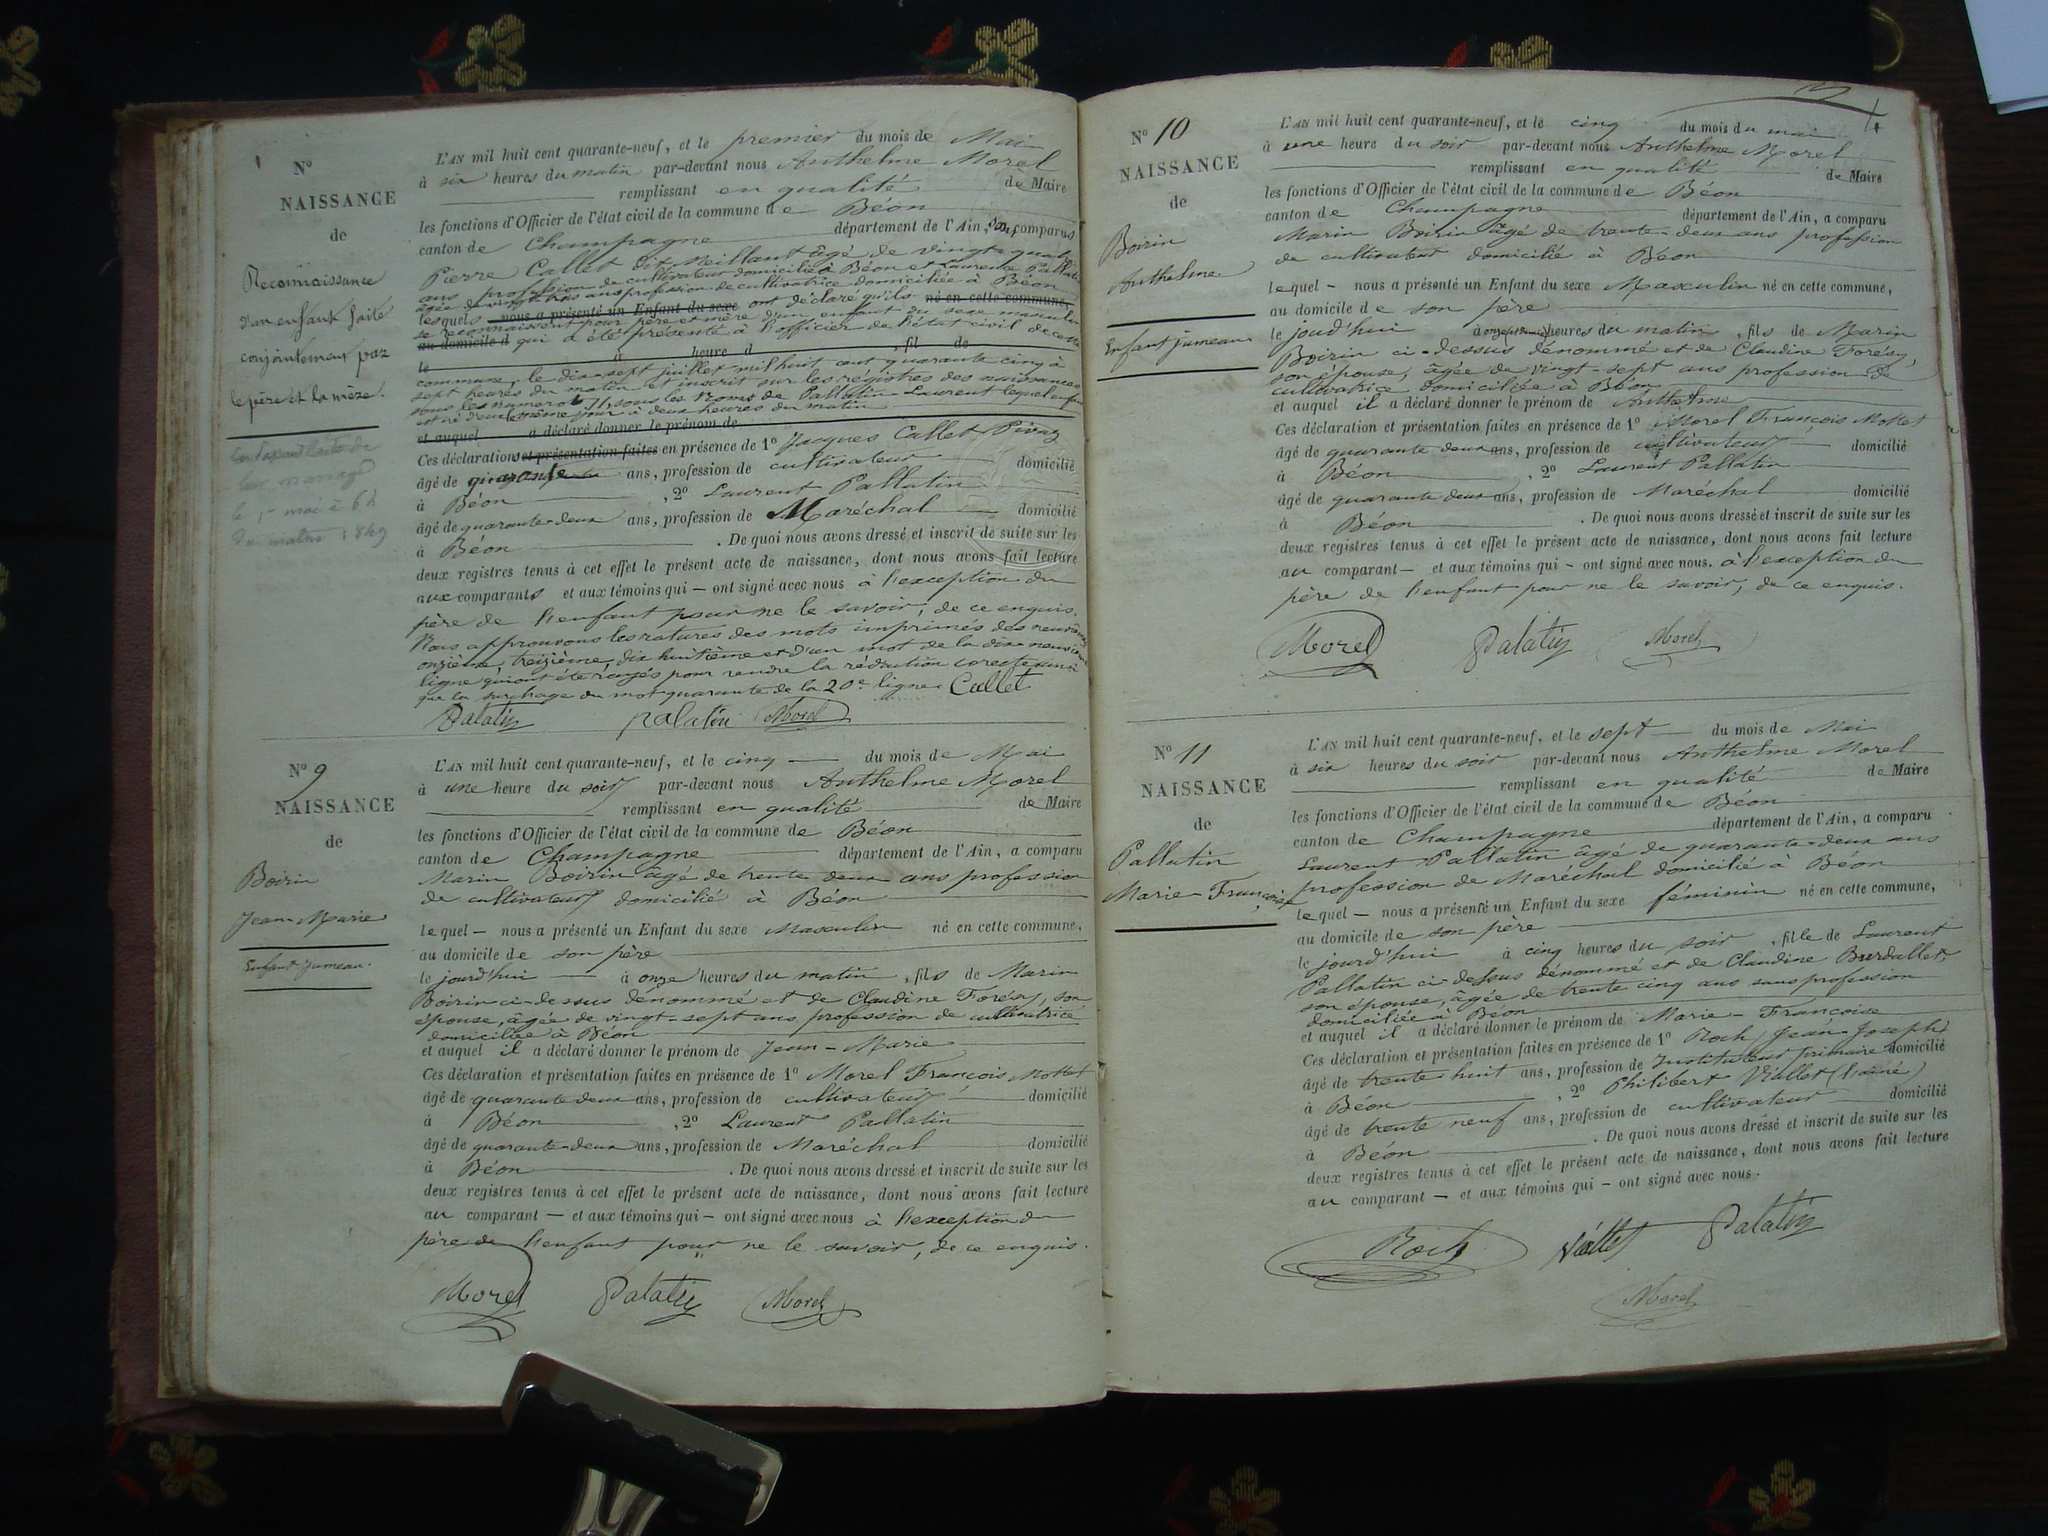 N°
NAISSANCE
de
Reconnaissance
d'un enfant faite
conjointement par
le père et la mère.
leur mariage
le 1er mai à 6 h
du matin 1849
L'AN mil huit cent quarante-neuf, et le premier du mois de Mai
à six heures du matin par-devant nous Anthelme Morel
remplissant en qualité de Maire
les fonctions d'Officier de l'état civil de la commune de Béon
canton de Champagne département de l'Ain, sont comparus
Pierre Callet dit Meillant âgé de vingt-quatre
ans profession de cultivateur domicilié à Béon et Laurence Pallatin
âgée de vingt trois ans profession de cultivatrice domiciliée à Béon
lesquels nous a présenté un Enfant du sexe ont déclaré qu'ils né en cette commune,
se reconnaissent pour père et mère d'un enfant du sexe masculin
au domicile d qui a été présenté à l'officier de l'état civil de cette
le à heure d , fil de
commune, le dix-sept juillet mil huit cent quarante cinq à
sept heures du matin et inscrit sur les régistres des naissances
sous les numéros 11, sous les noms de Pallatin Laurent lequel enfant
est né d'eux le même jour à deux heures du matin
et auquel a déclaré donner le prénom de
Ces déclarations et présentation faites en présence de 1° Jacques Callet Pivaz
âgé de quarante ans, profession de cultivateur domicilié
à Béon , 2° Laurent Pallatin
âgé de quarante-deux ans, profession de Maréchal domicilié
à Béon . De quoi nous avons dressé et inscrit de suite sur les
deux registres tenus à cet effet le présent acte de naissance, dont nous avons fait lecture
aux comparants et aux témoins qui - ont signé avec nous à l'exception du
père de l'enfant pour ne le savoir, de ce enquis.
Nous approuvons les ratures des mots imprimés des neuvième
onzième, treizième, dix huitième et d'un mot de la dix neuvième
ligne qui ont été rayés pour rendre la rédaction correcte ainsi
que la surchage du mot quarante de la 20e ligne. Callet
Palatin palatin Morel
N° 9
NAISSANCE
de
Boirin
Jean-Marie
Enfant jumeau.
L'AN mil huit cent quarante-neuf, et le cinq du mois de Mai
à une heure du soir par-devant nous Anthelme Morel
remplissant en qualité de Maire
les fonctions d'Officier de l'état civil de la commune de Béon
canton de Champagne département de l'Ain, a comparu
Marin Boirin âgé de trente deux ans profession
de cultivateur domicilié à Béon
lequel - nous a présenté un Enfant du sexe Masculin né en cette commune,
au domicile de son père
le jourd'hui à onze heures du matin , fils de Marin
Boirin ci-dessus dénommé et de Claudine Forésy, son
épouse, âgée de vingt-sept ans profession de cultivatrice
domiciliée à Béon
et auquel il a déclaré donner le prénom de Jean-Marie
Ces déclaration et présentation faites en présence de 1° Morel François Mottet
âgé de quarante deux ans, profession de cultivateur domicilié
à Béon , 2° Laurent Pallatin
âgé de quarante-deux ans, profession de Maréchal domicilié
à Béon . De quoi nous avons dressé et inscrit de suite sur les
deux registres tenus à cet effet le présent acte de naissance, dont nous avons fait lecture
au comparant - et aux témoins qui - ont signé avec nous à l'exception du
père de l'enfant pour ne le savoir, de ce enquis.
Morel Palatin Morel
N° 10
NAISSANCE
de
Boirin
Anthelme
Enfant jumeau
L'AN mil huit cent quarante-neuf, et le cinq du mois du mai
à une heure du soir par-devant nous Anthelme Morel
remplissant en qualité de Maire
les fonctions d'Officier de l'état civil de la commune de Béon
canton de Champagne département de l'Ain, a comparu
Marin Boirin âgé de trente-deux ans profession
de cultivateur domicilié à Béon
lequel - nous a présenté un Enfant du sexe Masculin né en cette commune,
au domicile de son père
le jourd'hui à onze heures du matin , fils de Marin
Boirin ci-dessus dénommé et de Claudine Forésy,
son épouse, âgée de vingt-sept ans profession de
cultivatrice domiciliée à Béon
et auquel il a déclaré donner le prénom de Anthelme
Ces déclaration et présentation faites en présence de 1° Morel François Mottet
âgé de quarante deux ans, profession de cultivateur domicilié
à Béon , 2° Laurent Pallatin
âgé de quarante deux ans, profession de Maréchal domicilié
à Béon . De quoi nous avons dressé et inscrit de suite sur les
deux registres tenus à cet effet le présent acte de naissance, dont nous avons fait lecture
au comparant - et aux témoins qui - ont signé avec nous. à l'exception du
père de l'enfant pour ne le savoir, de ce enquis.
Morel Palatin Morel
N° 11
NAISSANCE
de
Pallatin
Marie-Françoise
L'AN mil huit cent quarante-neuf, et le sept du mois de Mai
à six heures du soir par-devant nous Anthelme Morel
remplissant en qualité de Maire
les fonctions d'Officier de l'état civil de la commune de Béon
canton de Champagne département de l'Ain, a comparu
Laurent Pallatin âgé de quarante-deux ans
profession de Maréchal domicilié à Béon
lequel - nous a présenté un Enfant du sexe féminin né en cette commune,
au domicile de son père
le jourd'hui à cinq heures du soir , fille de Laurent
Pallatin ci-dessus dénommé et de Claudine Burdallet,
son épouse, âgée de trente cinq ans sans profession
domiciliée à Béon
et auquel il a déclaré donner le prénom de Marie-Françoise
Ces déclaration et présentation faites en présence de 1° Roch Jean-Joseph
âgé de trente huit ans, profession de Instituteur primaire domicilié
à Béon , 2° Philibert Viallet (l'aîné)
âgé de trente neuf ans, profession de cultivateur domicilié
à Béon . De quoi nous avons dressé et inscrit de suite sur les
deux registres tenus à cet effet le présent acte de naissance, dont nous avons fait lecture
au comparant - et aux témoins qui - ont signé avec nous.
Roch Viallet Palatin
Morel